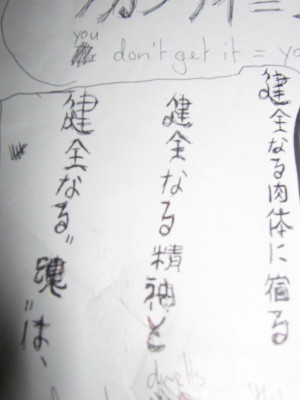 you
don't get it = yo
健全なる肉体に宿る
健全なる精神と
健全なる"魂"は、